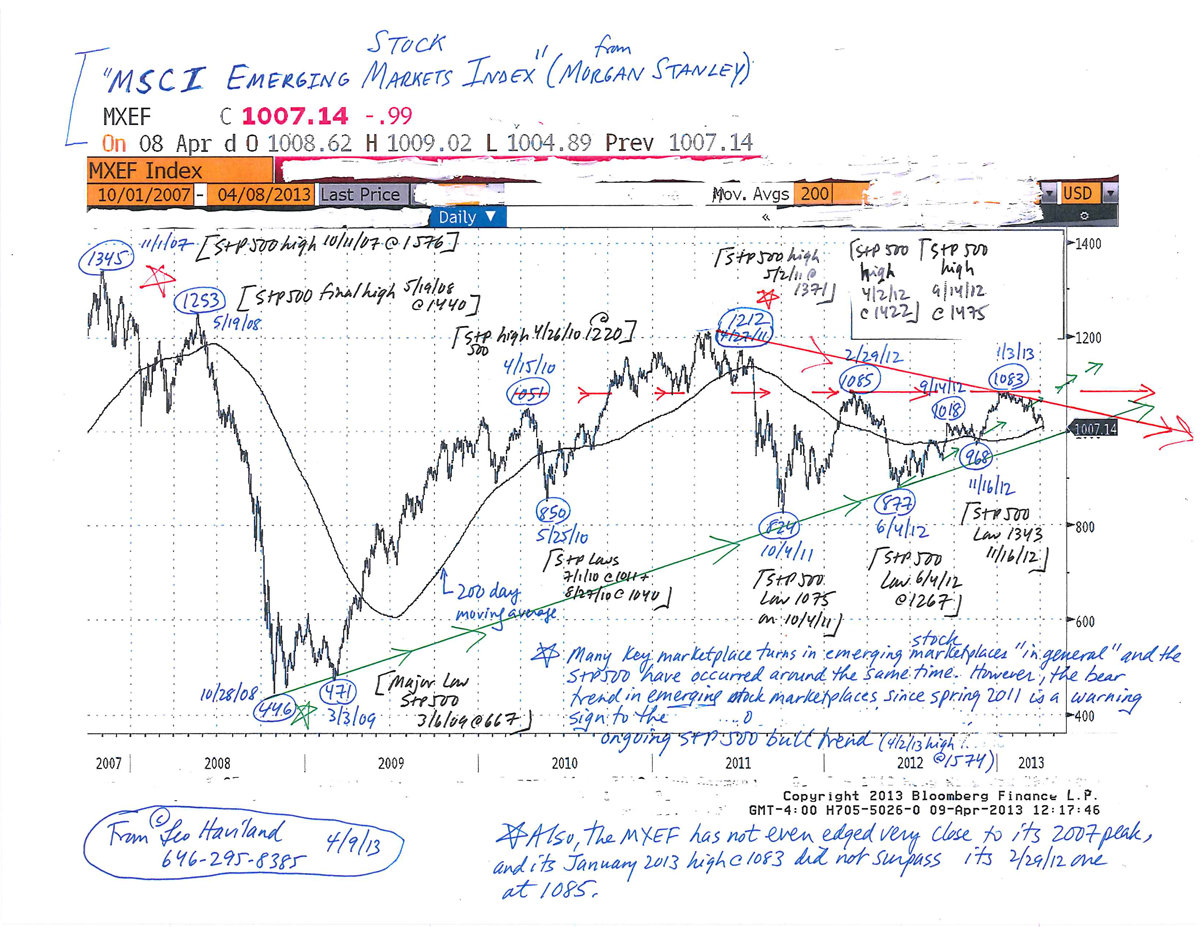 STOCK
"MSCI EMERGING MARKETS INDEX" (from MORGAN STANLEY)
MXEF C 1007.14 -.99
On 08 Apr d O 1008.62 H 1009.02 L 1004.89 Prev 1007.14
MXEF Index
10/01/2007 - 04/08/2013 Last Price Mov. Avgs 200 USD
Daily ▼ «
1345 11/1/07 [S+P 500 high 10/11/07 @ 1576]
1253 5/19/08
[S+P 500 final high 5/19/08 @ 1440]
[S+P 500 high 4/26/10 @ 1220]
4/15/10
1051
[S+P 500 high
5/2/11 @
1371]
1212
4/27/11
[S+P 500
high
4/2/12
@ 1422]
[S+P 500
high
9/14/12
@ 1475
2/29/12
1085
9/14/12
1018
1/3/13
1083
1400
1200
1007.14
800
600
400
850
5/25/10
[S+P Lows
7/1/10 @ 1011
8/27/10 @ 1040]
824
10/4/11
[S+P 500
Low 1075
on 10/4/11]
877
6/4/12
[S+P 500
Low 6/4/12
@ 1267]
968
11/16/12
[S+P 500
Low 1343
11/16/12]
200 day
moving average
10/28/08 446
471
3/3/09
[Major Low
S+P 500
3/6/09 @ 667]
Many key marketplace turns in emerging stock marketplaces "in general" and the
S+P 500 have occurred around the same time. However, the bear
trend in emerging stock marketplaces since spring 2011 is a warning
sign to the
ongoing S+P 500 bull trend (4/2/13 high
@ 1574)
2007 2008 2009 2010 2011 2012 2013
Copyright 2013 Bloomberg Finance L.P.
GMT-4:00 H705-5026-0 09-Apr-2013 12:17:46
From © Leo Haviland 4/9/13
646-295-8385
Also, the MXEF has not even edged very close to its 2007 peak,
and its January 2013 high @ 1083 did not surpass its 2/29/12 one
at 1085.